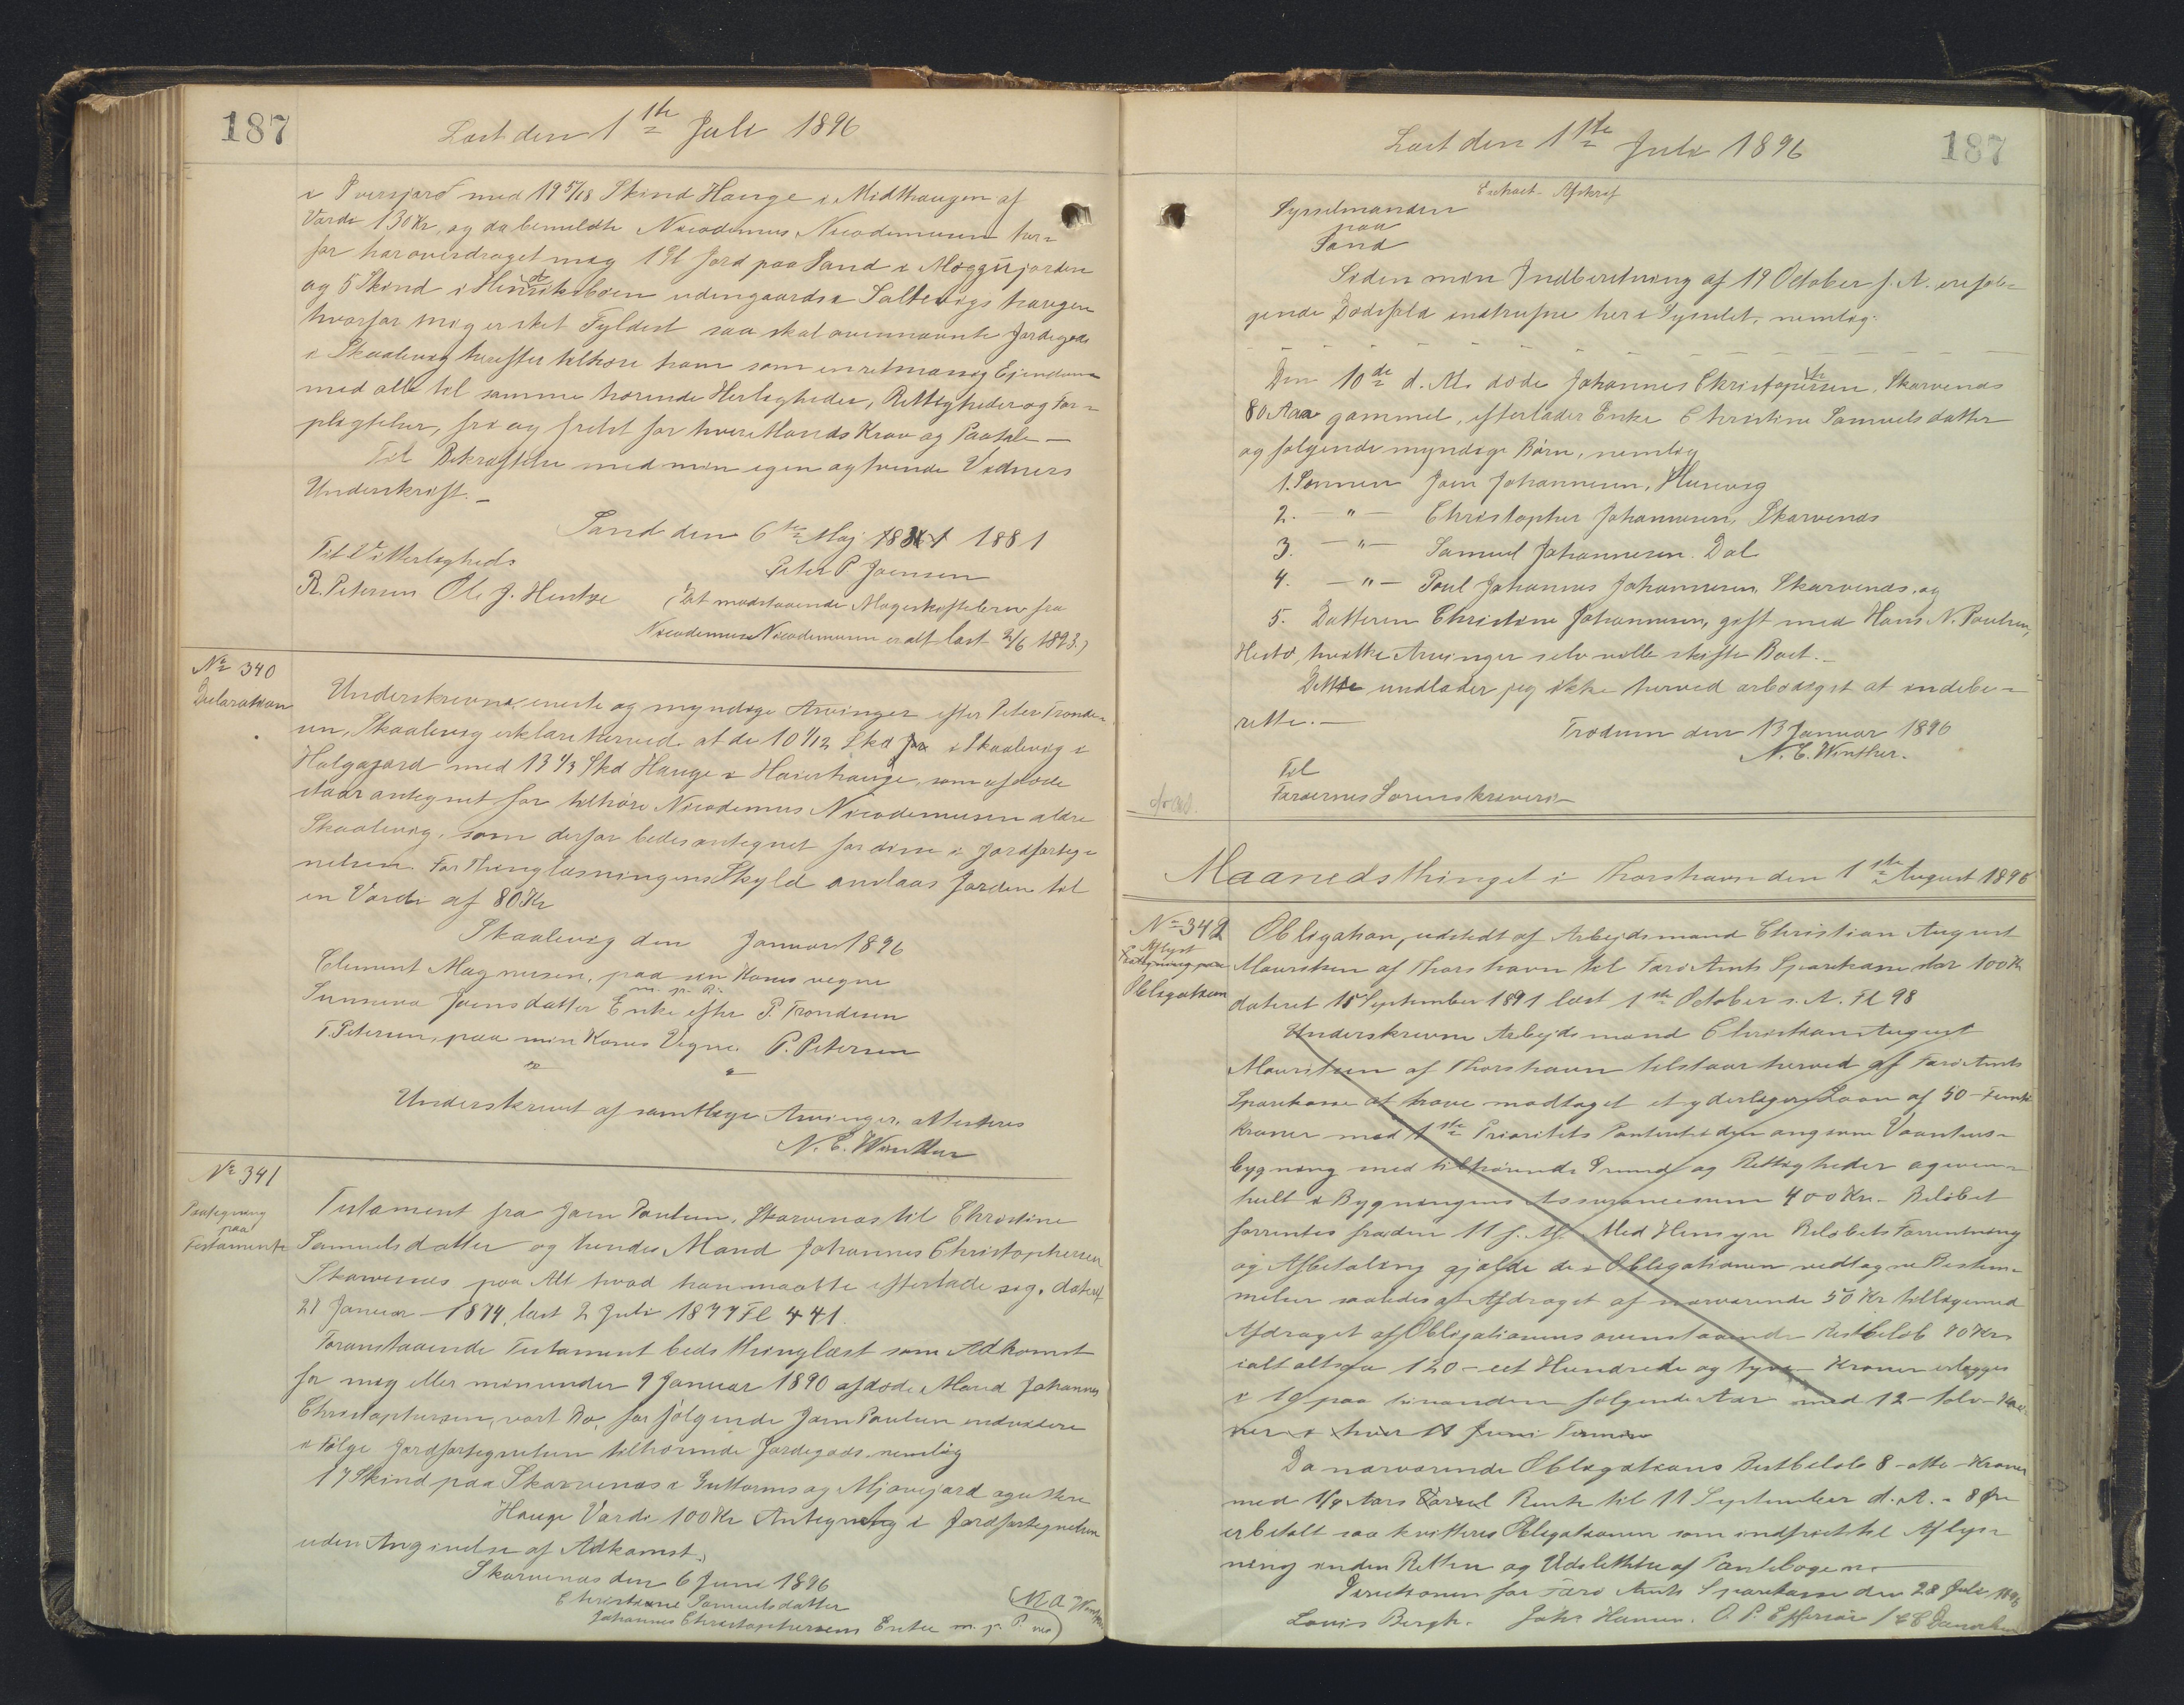 187
Læst den 1ste Juli 1896
i Iversjord med 19 5/18 Skind Hauge i Midthaugen af
Værdi 130 Kr, og da bemeldte Nicodemus Nicodemussen her=
for har overdraget mig 1 Gl Jord paa Sand i Møggüjorden
og 5 Skind i Hendriksbøen udengaards i Saltevigs haugen
hvorfor mig er sket Fyldest saa skal ovennævnte Jordegods
i Skaalevig herefter tilhøre ham som en retmæssig Ejendom
med alle til samme hørende Herligheder, Rettigheder og For=
pligtelser, fri og frelst for hver Mands Krav og Paatale —
Til Bekræftelse med min egen og tvende Vidners
Underskrift. —
Sand den 6te Maj 1881
Til Vitterligheds
Peter P Joensen
R. Petersen Ole J. Hentze
(Det modstaaende Mageskiftebrev fra
Nicodemus Nicodemussen er alt læst 2/6 1893.)
No 340
Declaration
Underskrevne eneste og myndige Arvinger efter Peter Tronde=
sen, Skaalevig erklære herved at de 10 1/12 Skd Jor i Skaalevig i
Holgajord med 13 1/3 Skd Hauge i Haierhauge, som afdøde
staar antegnet for tilhøre Nicodemus Nicodemussen ældre
Skaalevig, som derfor bedes antegnet for disse i Jordforteg=
nelsen. For Thinglæsningens Skyld anslaas Jorden til
en Værdi af 80 Kr
Skaalevig den Januar 1896
Clement Magnussen, paa sin Kones vegne
m. p. P.
Sunneva Joensdatter Enke efter P. Trondesen
T. Petersen, paa min Kones Vegne. P. Petersen
Underskrevet af samtlige Arvinger, Atesteres
N. C. Winther
No 341
Paategning
paa
Testamente
Testament fra Joen Poulsen, Skarvenæs til Christine
Samuelsdatter og hendes Mand Johannes Christophersen
Skarvenæs paa Alt hvad han maatte efterlade sig, dateret
27 Januar 1874, læst 2 Juli 1877 Fl 441.
Foranstaaende Testament bedes thinglæst som Adkomst
for mig eller min under 9 Januar 1890 afdøde Mand Johannes
Christophersen, vort Bo, for følgende Joen Poulsen endvidere
i Følge Jordfortegnelsen tilhørende Jordegods nemlig
17 Skind paa Skarvenæs i Guttorms og Mjovejord
Hauge Værdi 100 Kr Antegnelig i Jordfortegnelsen
uden Angivelse af Adkomst.
Skarvenæs den 6 Juni 1896
Christine Samuelsdatter
Johannes Christophersens Enke m. p. P.
187
Læst den 1ste Juli 1896
Extract Afskrif
Sysselmanden
paa
Sand
Siden min Indberetning af 19 October f. A. ere føl=
gende Dødsfald indtrufne her i Sysselet, nemlig:
Den 10de d. M. døde Johannes Christopersen, Skarvenæs
80 Aar gammel, efterlader Enke Christine Samuelsdatter
og følgende myndige Børn, nemlig
1. Sønnen Joen Johannesen, Husevig
2. — " — Christopher Johannesen, Skarvenæs
3. — " — Samuel Johannesen Dal
4. — " — Poul Johannes Johannesen, Skarvenæs, og
5. Datteren Christine Johannesen, gift med Hans N. Poulsen,
Hestø, hvilke Arvinger selv ville skifte Boet. —
Dette undlader jeg ikke herved ærbødigst at indebe=
rette. —
Trødum den 13 Januar 1896
N. C. Winther.
Til
Færøernes Sorenskriveri
Maanedsthinget i Thorshavn den 1ste August 1896
No 342
Aflyst
Paategning paa
Obligation
Obligation, udstedt af Arbejdsmand Christian August
Mouritsen af Thorshavn til Færø Amts Sparekasse stor 100 Kr
dateret 15 September 1891 læst 1ste October s. A. Fl 98
Underskrevne Arbejdsmand Christian August
Mouritsen af Thorshavn tilstaar herved af Færø Amts
Sparekasse at have modtaget et yderligere Laan af 50 – Femti
Kroner med 1ste Prioritets Panteret i den mig Vaanhus=
bygning med tilhørende Grund og Rettigheder og even=
tuelt i Bygningens Assurancesum 400 Kr. Beløbet
forrentes fra den 11 f. M. Med Hensyn Beløbets Forrentning
og Afbetaling gjælde de i Obligationen vedtagne Bestem=
melser saaledes at Afdraget af nærværende 50 Kr tilligemed
Afdraget af Obligationens ovenstaaende Restbeløb 70 Kr
ialt altsaa 120 – eet Hundrede og tyve – Kroner erlægges
i 10 paa hinanden følgende Aar med 12 – tolv – Kro=
ner i hver 11 Juni Termin
Da nærværende Obligations Restbeløb 8 – otte – Kroner
med Aars Rente til 11 September d. A. – 8 Øre
er betalt saa kvitteres Obligationen som indfriet til Aflys=
ning inden Retten og Udslettelse af Pantebogen.
Direktionen for Færø Amts Sparekasse den 28 Juli 1896
Louis Bergh. Johs Hansen. O. P. Effersøe /